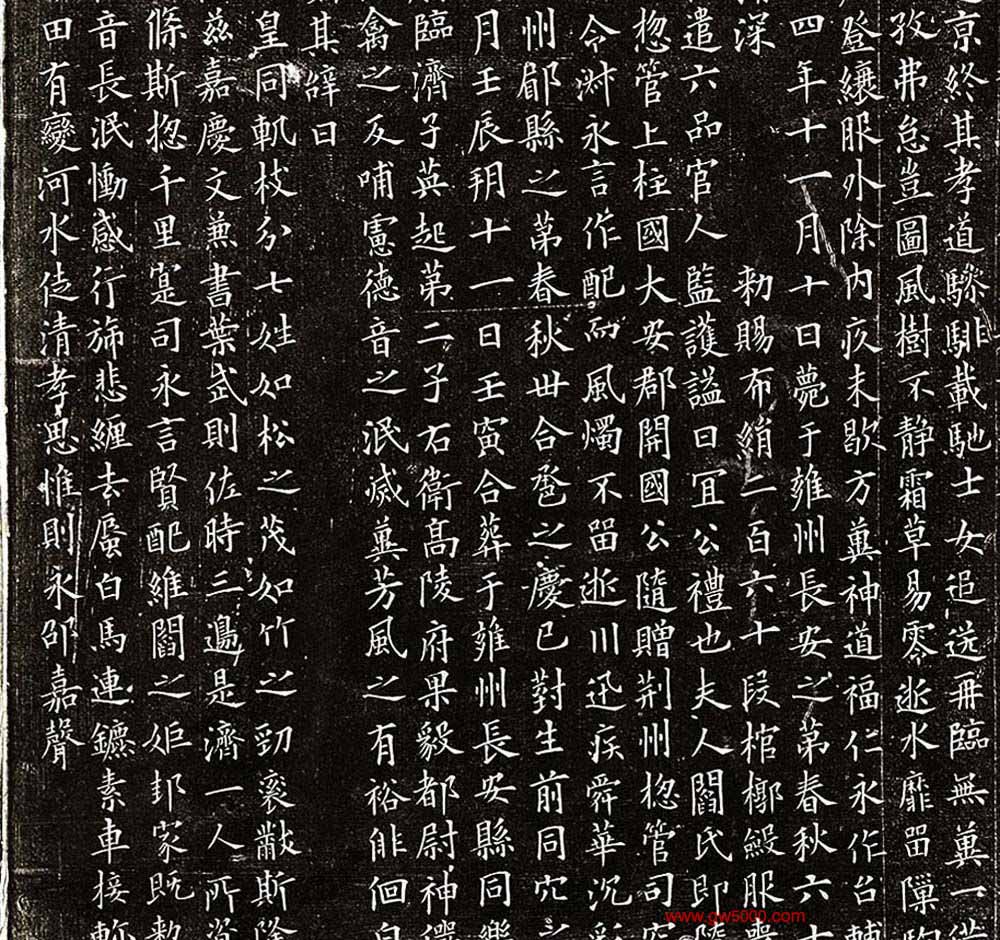 京終其孝道驂騑載馳士女追送再臨無冀一
孜弗怠豈圖風樹不静霜草易零逝水靡留隟駒
登纕服外除内疚未歇方冀神道福仁永作台輔
四年十一月十日薨于雍州長安之第春秋六十
深 勑賜布絹二百六十段棺槨服喪
遣六品官人監護謚曰宜公禮也夫人閻氏即陵
惣管上柱國大安郡開國公隨贈荆州惣管司空
令淋永言作配而風燭不留逝川迅疾舜華沉彩
州郿縣之第春秋卌合卺之慶已對生前同穴之
月壬辰朔十一日壬寅合葬于雍州長安縣同樂
臨濟子英起第二子右衛高陵府果毅都尉神
禽之反哺憲德音之泯滅冀芳風之有裕俳佪自
其辭曰
皇同軌枝分七姓如松之茂如竹之勁衮黻斯隆
茲嘉慶文兼書葉武則佐時三邊是濟一人所資
條斯惣千里寔司永言賢配維閻之姬邦家既
音長泯慟感行旆悲纏去蜃白馬連鑣素車接軫
田有變河水徒清孝思惟則永邵嘉聲
www.gw5000.com